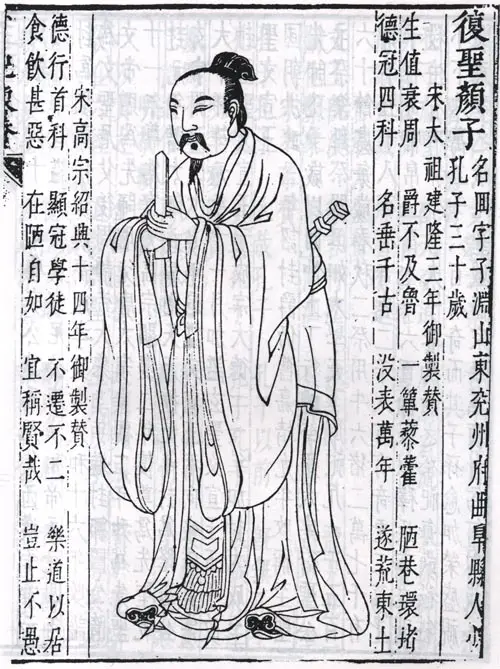 復聖顏子
名囬字子淵山東兗州府曲阜縣人少
孔子三十歲
宋太祖建隆三年御製贊
生值衰周 爵不及魯 一簞藜藿 陋巷環堵
德冠四科 名垂千古 沒表萬年 遂荒東土
宋高宗紹興十四年御製贊
德行首科 顯冠學徒 不遷不二 樂道以居
食飲甚惡 在陋自如 宜稱賢哉 豈止不愚